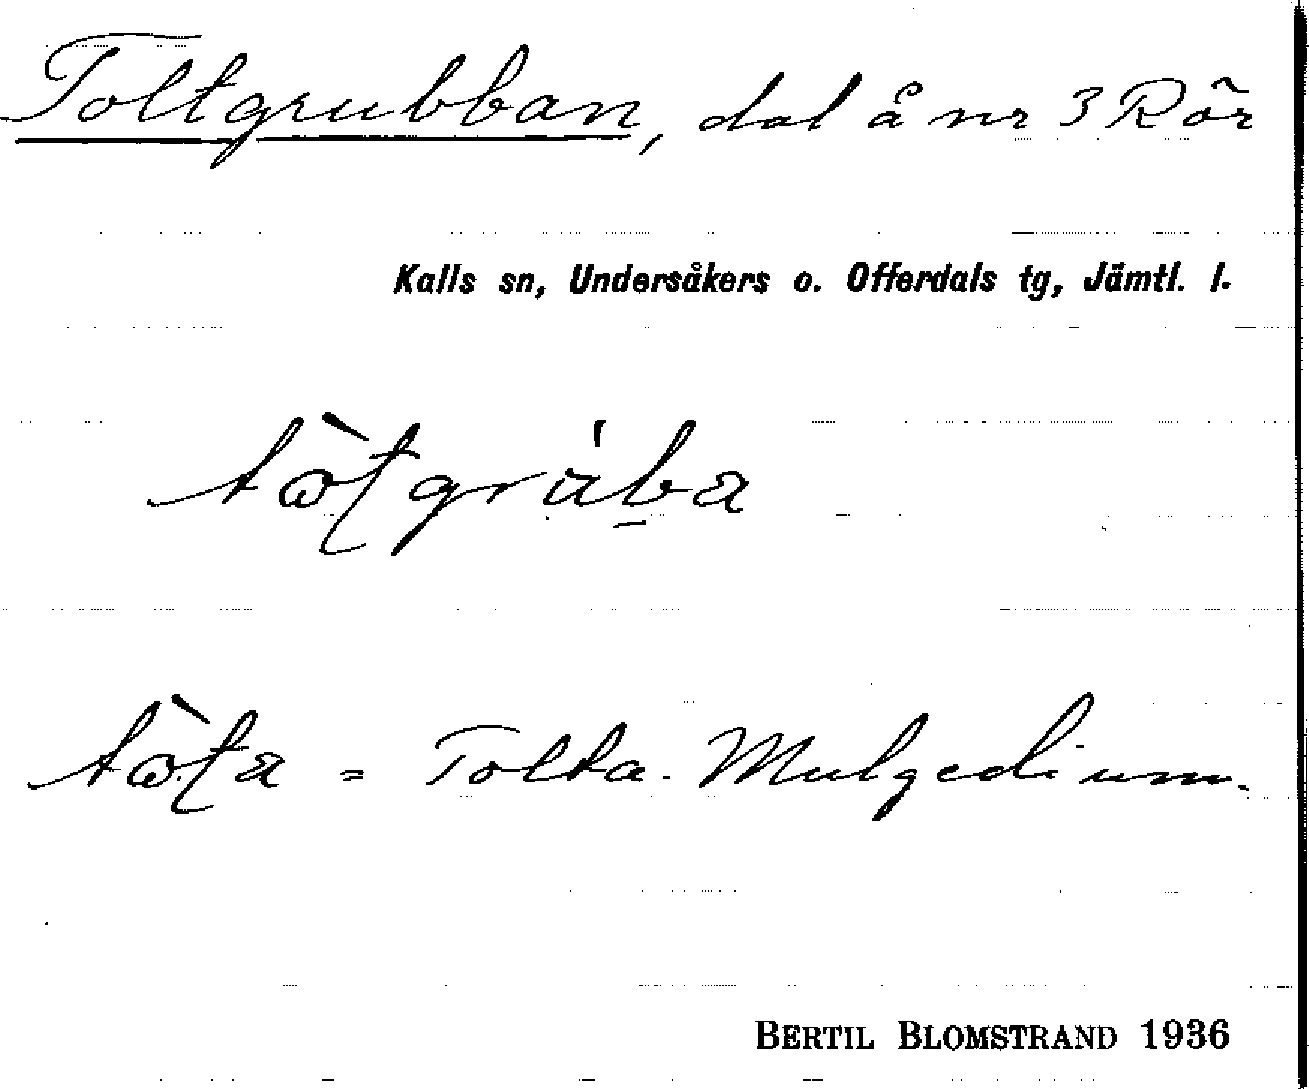 Toltgrubban, dal å nr 3 Rör
Kalls sn, Undersåkers o. Offerdals tg, Jämtl. l.
= Tolta. Mulgedium.
BERTIL BLOMSTRAND 1936